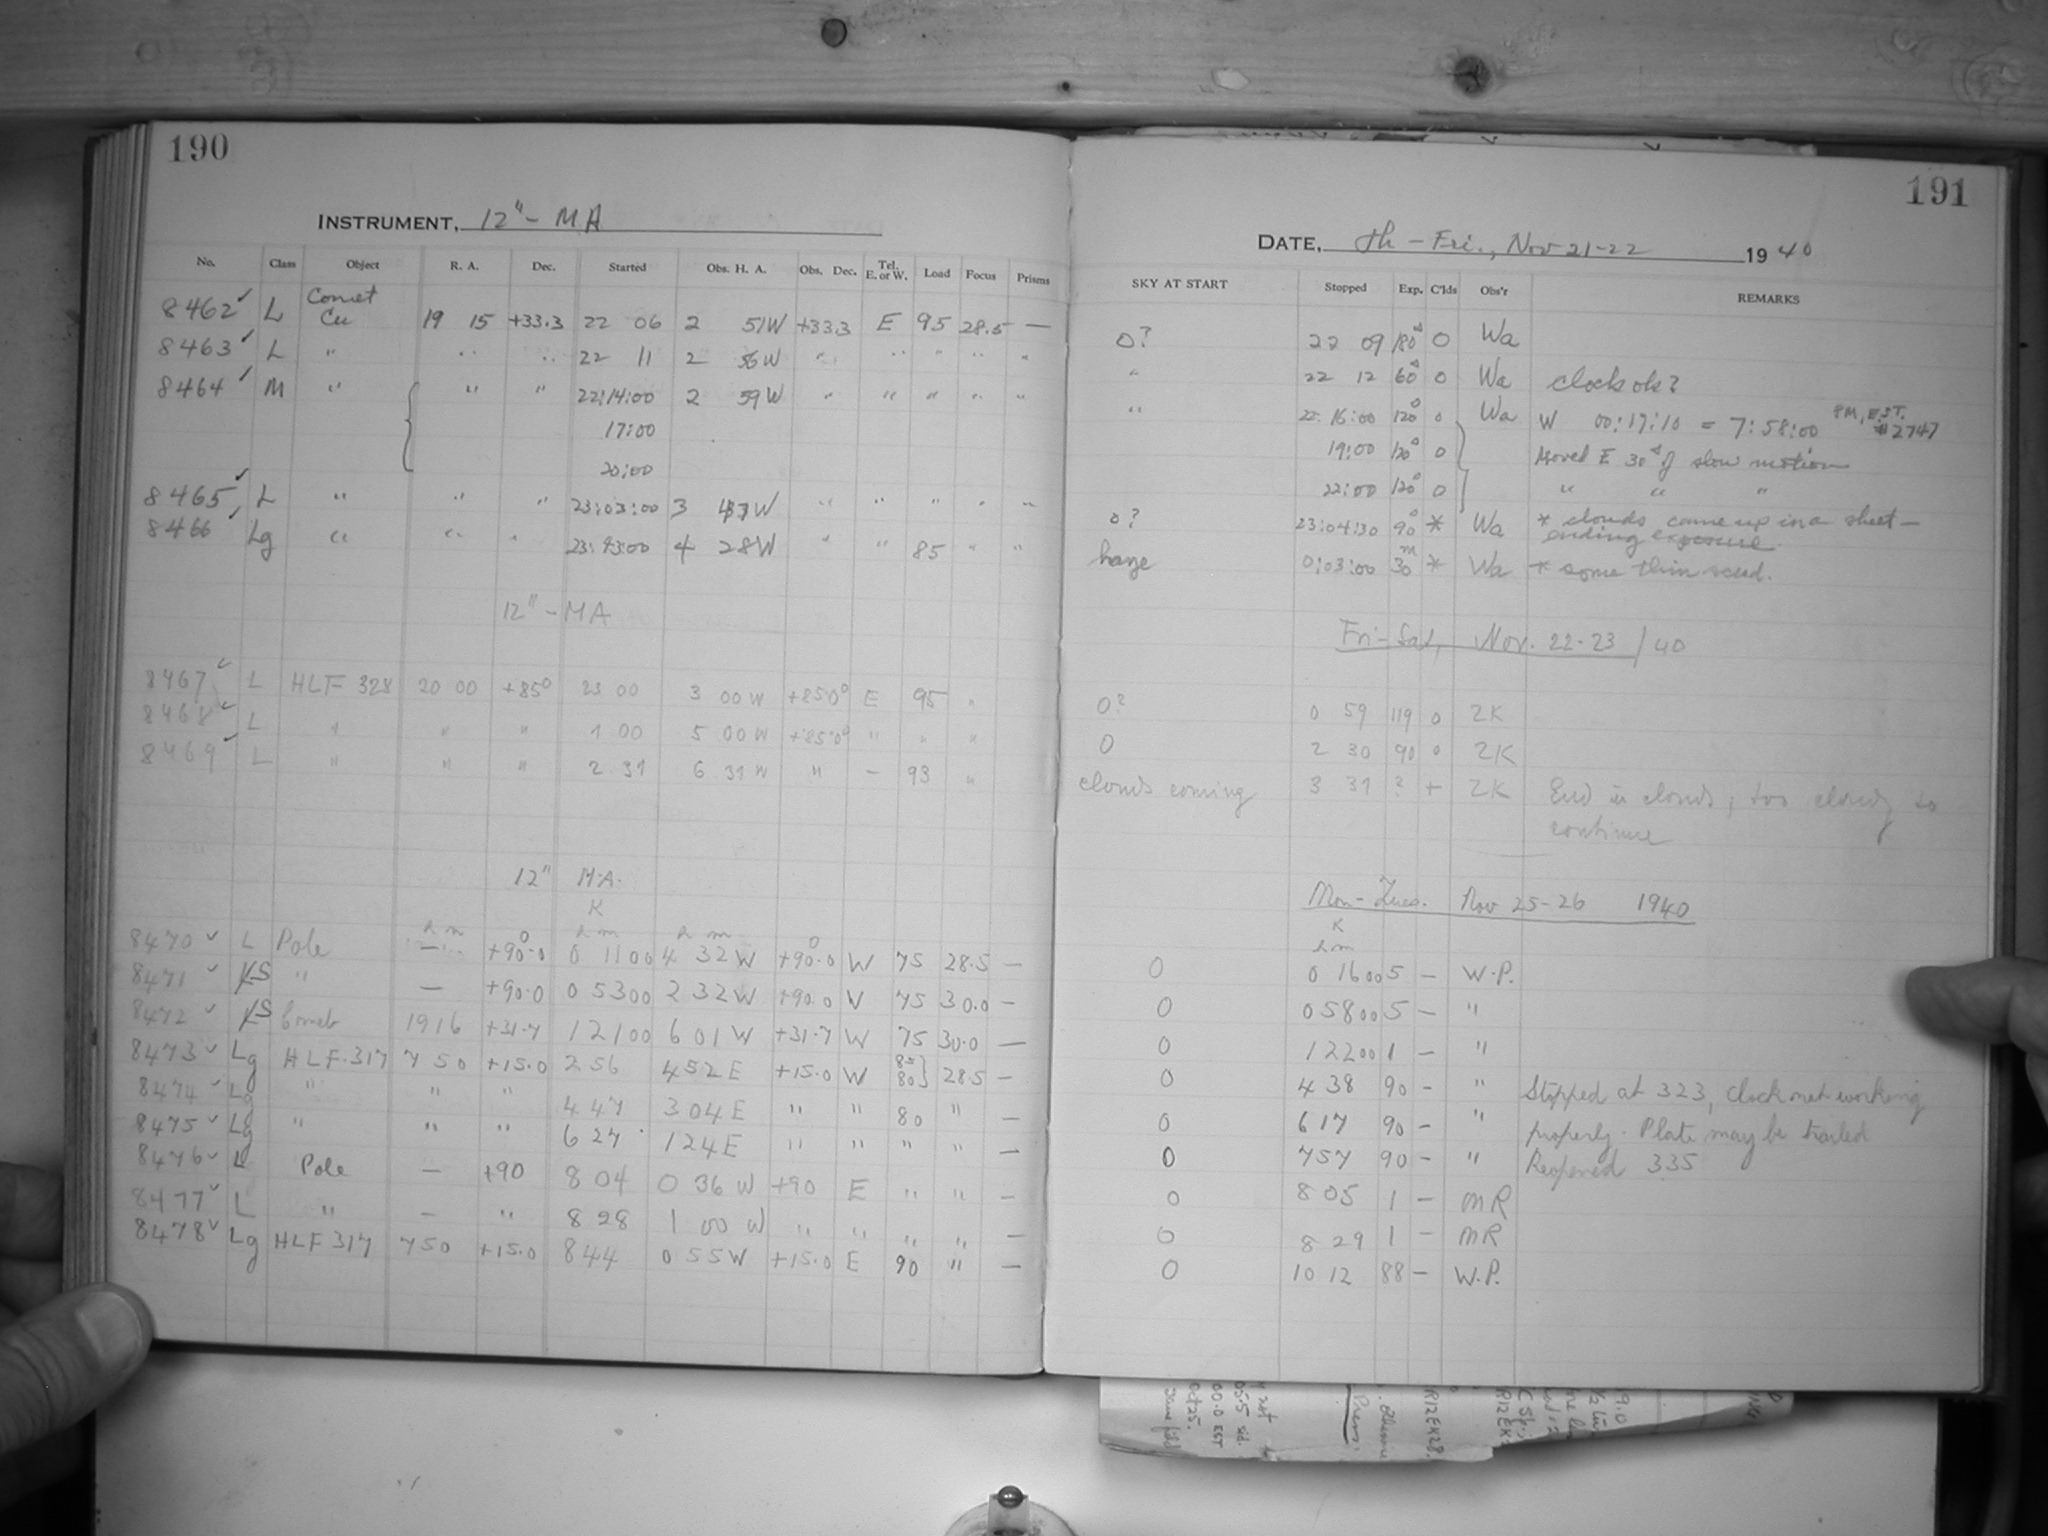 190
INSTRUMENT, 12" - MA
No. Class Object R. A. Dec. Started Obs. H. A. Obs. Dec. Tel. E. or W. Load Focus Prisms
8462 ✓ L Comet Cu 19 15 +33.3 22 06 2 51W +33.3 E 95 28.5 —
8463 ✓ L " " " 22 11 2 56W " " " " "
8464 ✓ M " " " 22:14:00 2 59W " " " " "
17:00
20:00
8465 ✓ L " " " 23:03:00 3 47W " " " " "
8466 ✓ Lg " " " 23:43:00 4 28W " " 85 " "
12" - MA
8467 ✓ L HLF 328 20 00 +85° 23 00 3 00W +85.0° E 95 "
8468 ✓ L " " " 1 00 5 00W +85.0° " " "
8469 ✓ L " " " 2 31 6 31W " – 93 "
12" M.A.
K
h m h m h m
8470 ✓ L Pole — +90.0 0 11 00 4 32W +90.0 W 75 28.5 —
8471 ✓ S " — +90.0 0 53 00 2 32W +90.0 W 75 30.0 —
8472 ✓ S Comet 19 16 +31.7 1 21 00 6 01W +31.7 W 75 30.0 —
8473 ✓ Lg HLF.317 7 50 +15.0 2 56 4 52E +15.0 W 85 80} 28.5 —
8474 ✓ Lg " " " 4 47 3 04E " " 80 " —
8475 ✓ Lg " " " 6 27 1 24E " " " " —
8476 ✓ L Pole — +90 8 04 0 36W +90 E " " —
8477 ✓ L " — " 8 28 1 00W " " " " —
8478 ✓ Lg HLF 317 7 50 +15.0 8 44 0 55W +15.0 E 90 " —
191
DATE, Th - Fri., Nov 21-22 1940
SKY AT START Stopped Exp. C'lds Obs'r REMARKS
0? 22 09 180s 0 Wa
" 22 12 60s 0 Wa clock ok?
" 22:16:00 120s 0 Wa W 00:17:10 = 7:58:00 PM, E.S.T. #2747
19:00 120s 0 Moved E 30s of slow motion
22:00 120s 0 " " "
0? 23:04:30 90s * Wa * clouds came up in a sheet —
ending exposure.
haze 0:03:00 30m * Wa * some thin scud.
Fri-Sat, Nov. 22-23/40
0? 0 59 119 0 ZK
0 2 30 90 0 ZK
clouds coming 3 31 ? + ZK End in clouds; too cloudy to
continue
Mon-Tues. Nov 25-26 1940
K
h m
0 0 16 00 5 — W.P.
0 0 58 00 5 — "
0 1 22 00 1 — "
0 4 38 90 — " Stopped at 323, clock not working
0 6 17 90 — " properly. Plate may be trailed
0 7 57 90 — " Reopened 335
0 8 05 1 — MR
0 8 29 1 — MR
0 10 12 88 — W.P.